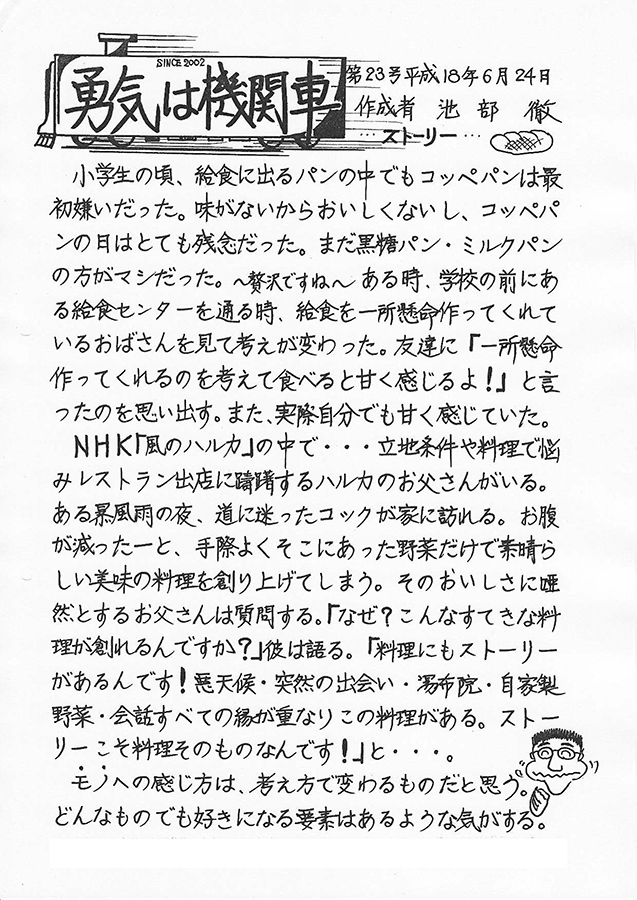 SINCE 2002
勇気は機関車
第23号平成18年6月24日
作成者 池部 徹
…ストーリー…
小学生の頃、給食に出るパンの中でもコッペパンは最
初嫌いだった。味がないからおいしくないし、コッペパ
ンの日はとても残念だった。まだ黒糖パン・ミルクパン
の方がマシだった。〜贅沢ですね〜 ある時、学校の前にあ
る給食センターを通る時、給食を一所懸命作ってくれて
いるおばさんを見て考えが変わった。友達に「一所懸命
作ってくれるのを考えて食べると甘く感じるよ!」と言
ったのを思い出す。また、実際自分でも甘く感じていた。
NHK「風のハルカ」の中で・・・立地条件や料理で悩
みレストラン出店に躊躇するハルカのお父さんがいる。
ある暴風雨の夜、道に迷ったコックが家に訪れる。お腹
が減ったーと、手際よくそこにあった野菜だけで素晴ら
しい美味の料理を創り上げてしまう。そのおいしさに唖
然とするお父さんは質問する。「なぜ?こんなすてきな料
理が創れるんですか?」彼は語る。「料理にもストーリー
があるんです!悪天候・突然の出会い・湯布院・自家製
野菜・会話すべての縁が重なりこの料理がある。ストー
リーこそ料理そのものなんです!」と・・・。
モノへの感じ方は、考え方で変わるものだと思う。
どんなものでも好きになる要素はあるような気がする。